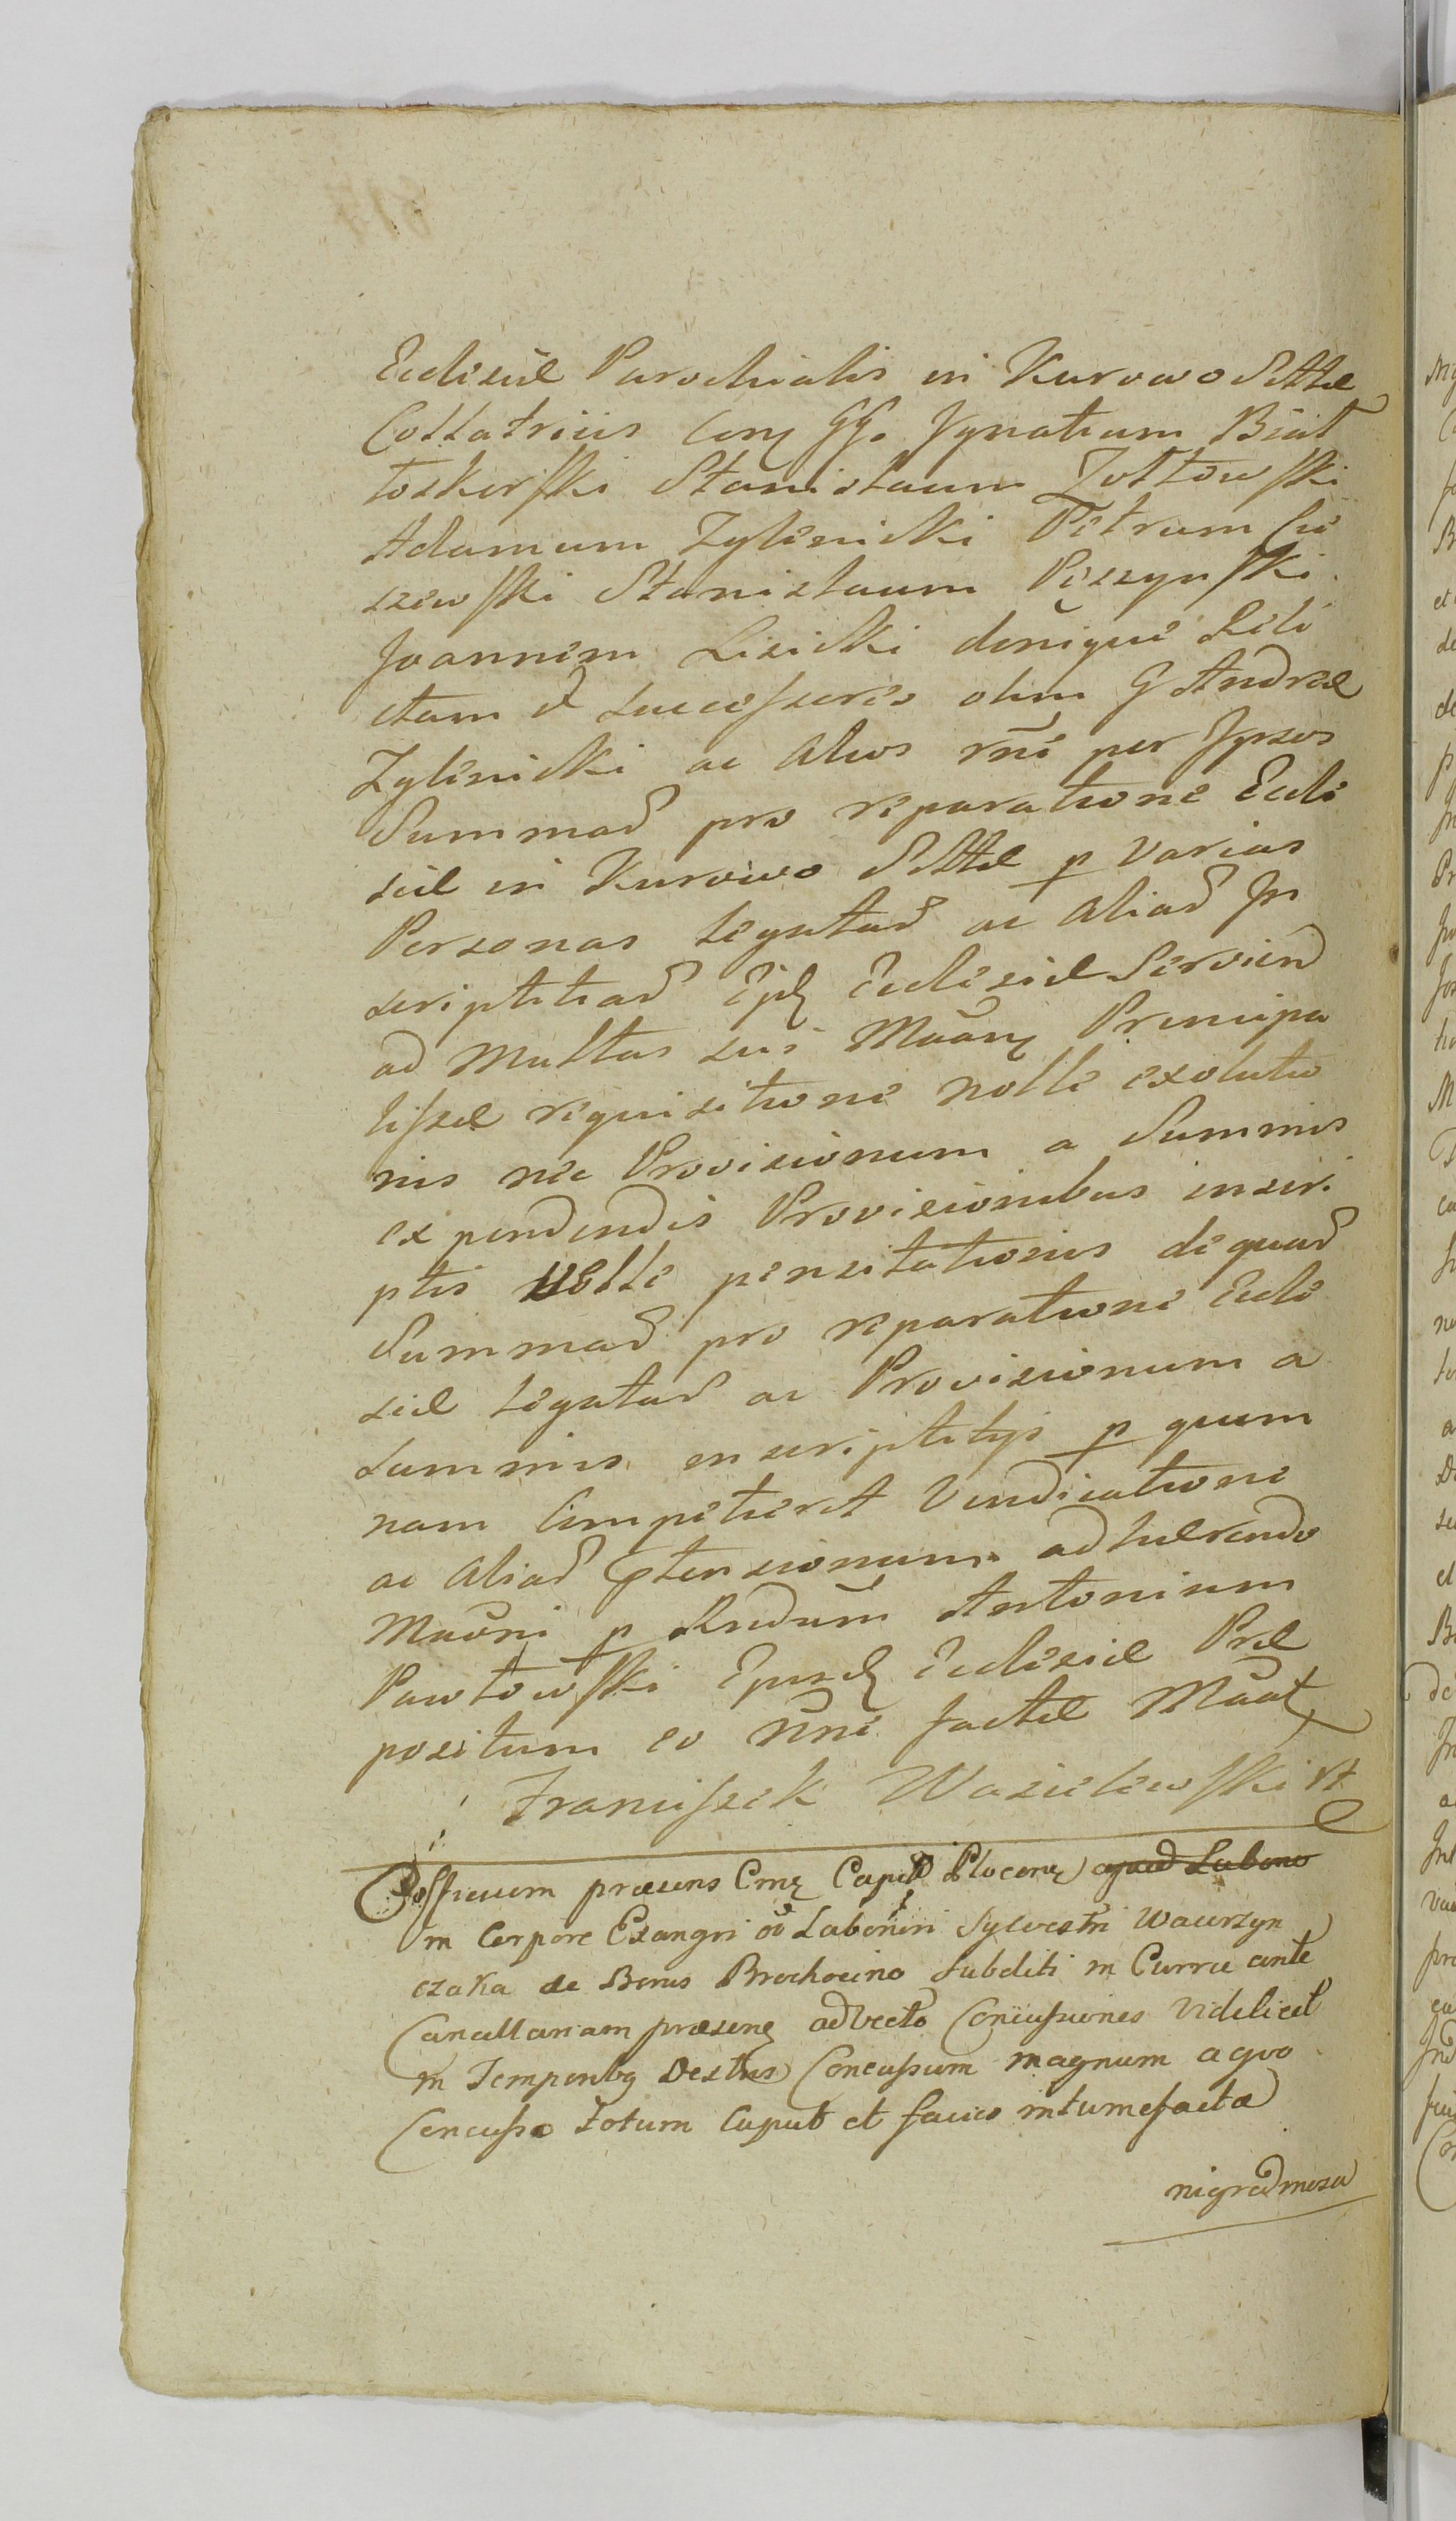 Ecclesiæ Parochialis in Kurowo Sittæ
Collatrices Conq GG. Ignatium Biał
łoskurski Stanislaum Zołtowski
Adamum Zglinicki Petrum Cie
szewski Stanislaum Pęszynski
Joannem Lisicki denique Reli
ctam et Successores olim G Andreæ
Zglinicki ac Alios rñe per Ipsos
Summaꝝ pro reparatione Eccle
siæ in Kurowo Sittæ p varias
Personas legataꝝ ac aliaꝝ In
scriptitiaꝝ Ejdꝫ Ecclesiæ Serviend
ad Multas sui Mãnꝫ Principa
lissæ requisitione nolle exolutio
nis nec Provisionum a Summis
ex pendendis Provisionibus inscri
ptis velle pensitationis de quaꝝ
Summaꝝ pro reparatione Eccle
siæ legataꝝ ac Provisionum a
Summis inscriptitijs p quem
nam Competierit Vindicatione
ac aliaꝝ Ptensionum adhærendo
Mãoni p Rndum Antonium
Pawłowski Ejusdꝫ Ecclesiæ Præ
positum eo nñe factæ Mãat
Franciszek Wasielewski
Officium præsens Cmꝫ Capitł Plocenꝫ apud Labono
in Corpore Exangvi Labonini Sylvestri Wawrzyn
czaka de Bonis Brochocino Subditi in Curru ante
Cancellariam præsenꝫ advecto Concussiones Videlicet
in Temporibꝫ Dextris Concussum magnum a quo
Concusso Totum Caput et facies intumefacta
nigraꝙ mosa